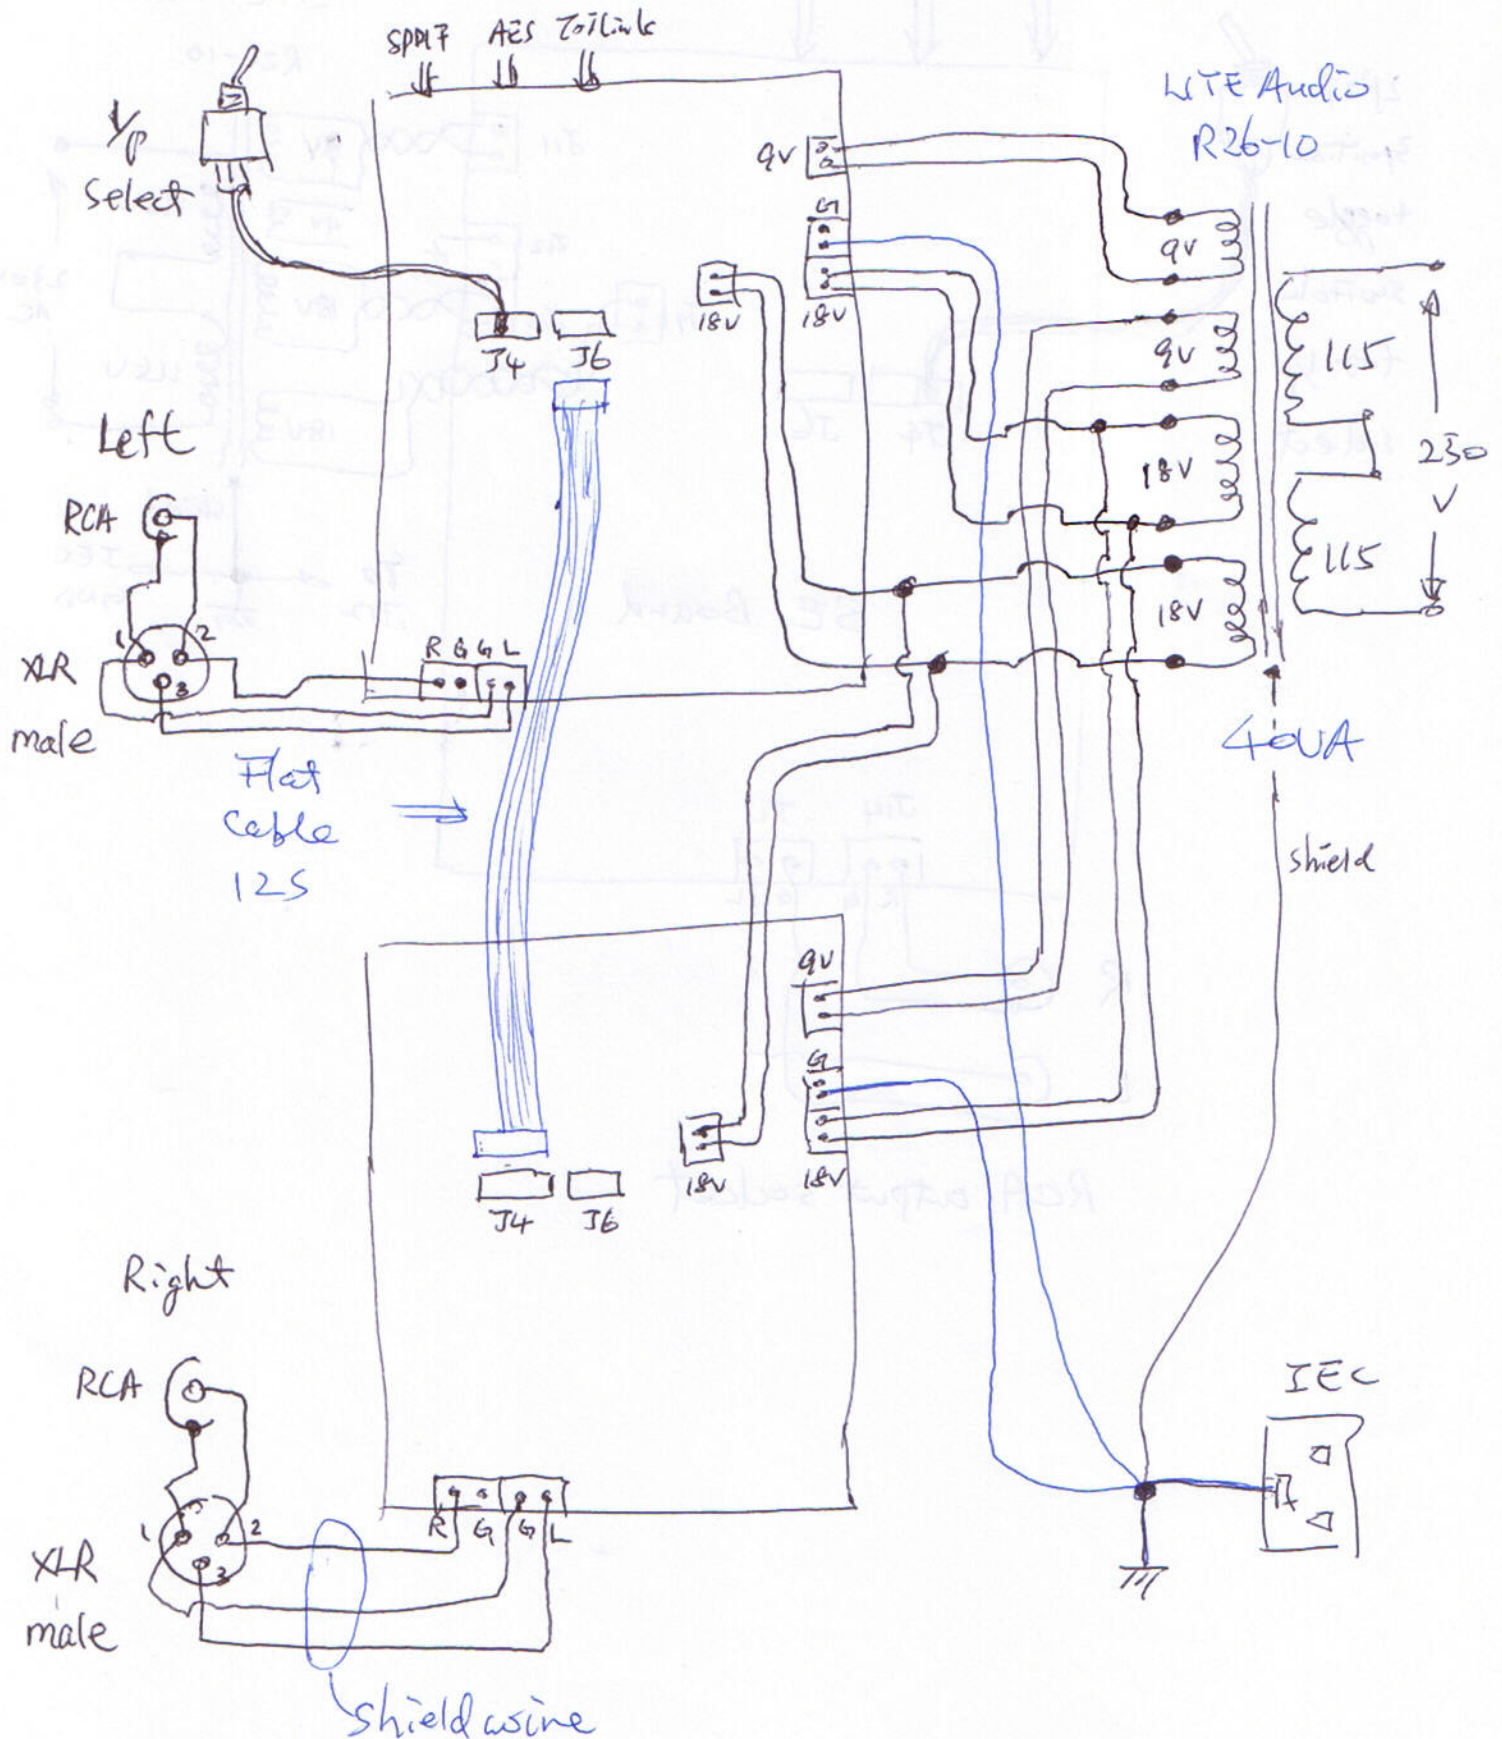 SPDIF AES Toslink
I/P
Select
LITE Audio
R26-10
9V
G
18V
18V
J4
J6
9V
9V
18V
18V
115
115
230
V
Left
RCA
1
2
3
XLR
male
R G G L
40VA
Flat
Cable
I2S
shield
9V
G
18V
18V
J4
J6
Right
RCA
1
2
3
XLR
male
R G G L
IEC
shield wire